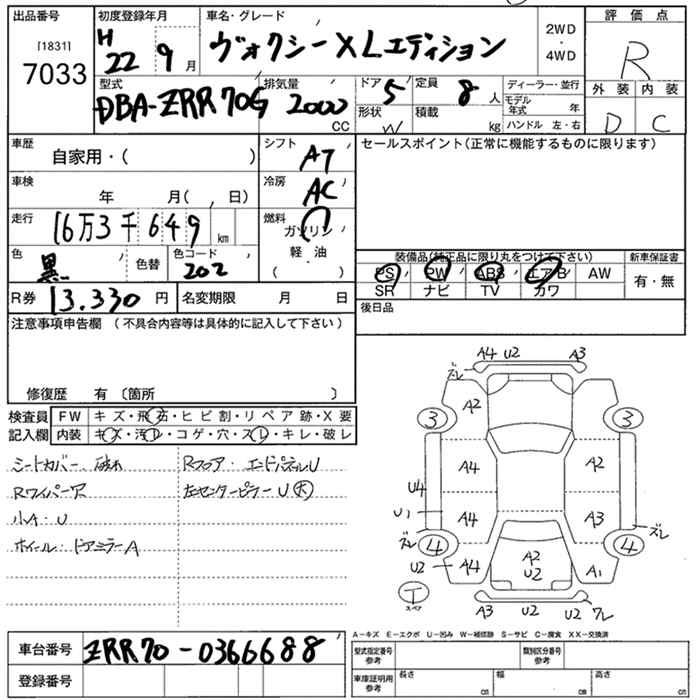 出品番号 初度登録年月 車名・グレード 2WD ・ 4WD 評価点
[1831] 7033 H 22 9月 ヴォクシー XLエディション R
型式 排気量 ドア 5 定員 8人 ディーラー・並行 外装 内装
DBA-ZRR70G 2000 CC 形状 W 積載 kg モデル年式 年 D C
ハンドル 左・右
車歴 自家用・( ) シフト AT セールスポイント(正常に機能するものに限ります)
車検 年 月( , 日) 冷房 AC
走行 16万3千649 km 燃料 ガソリン
色 黒 色替 色コード 202 軽・油 ( )
装備品(純正品に限り丸をつけて下さい) 新車保証書
PS PW ABS エアB AW 有・無
SR ナビ TV カワ
R券 13.330 円 名変期限 月 日 後日品
注意事項申告欄 (不具合内容等は具体的に記入して下さい)
修復歴 有 〔箇所 〕
検査員 FW キズ・飛石・ヒビ割・リペア跡・X要
記入欄 内装 キズ・汚レ・コゲ・穴・スレ・キレ・破レ
シートカバー 破れ Rフロア・エンドパネルU
Rワイパーア 左センターピラーU(大)
小A・U
ホイール・ドアミラーA
ズレ A4 U2 A3
A2
3 3
A4 A2
U4
U1 A4 A3
ズレ ズレ
4 4
U2 A4 A2 U2 A1
T スペア
A3 U2 U2 ワレ
A-キズ E-エクボ U-凹み W-補修跡 S-サビ C-腐食 XX-交換済
車台番号 ZRR70-0366688 型式指定番号 参考 類別区分番号 参考
登録番号 車庫証明用 参考 長さ cm 幅 cm 高さ cm